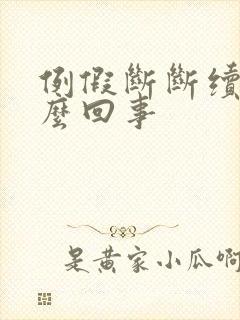 例假斷斷續
麼回事
是黄家小瓜啊